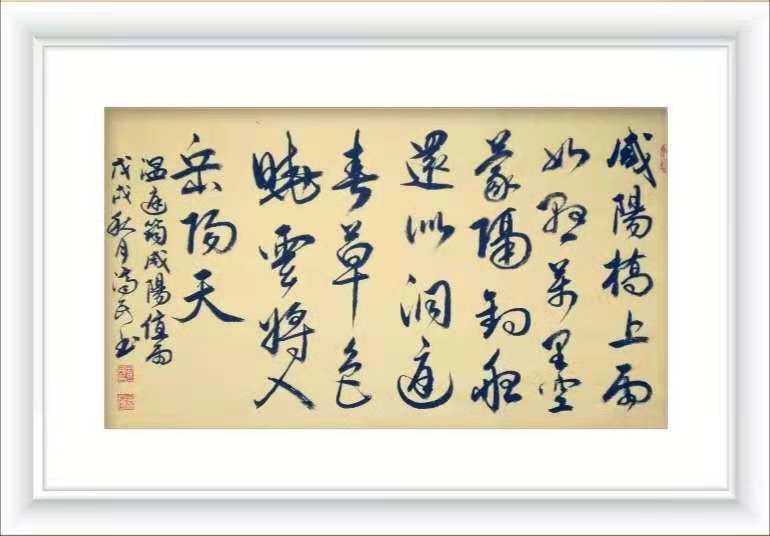 咸陽橋上雨
如懸萬里空
蒙隔釣船
還似洞庭
春草色
曉雲將入
岳陽天
温庭筠咸陽值雨
戊戌秋月书